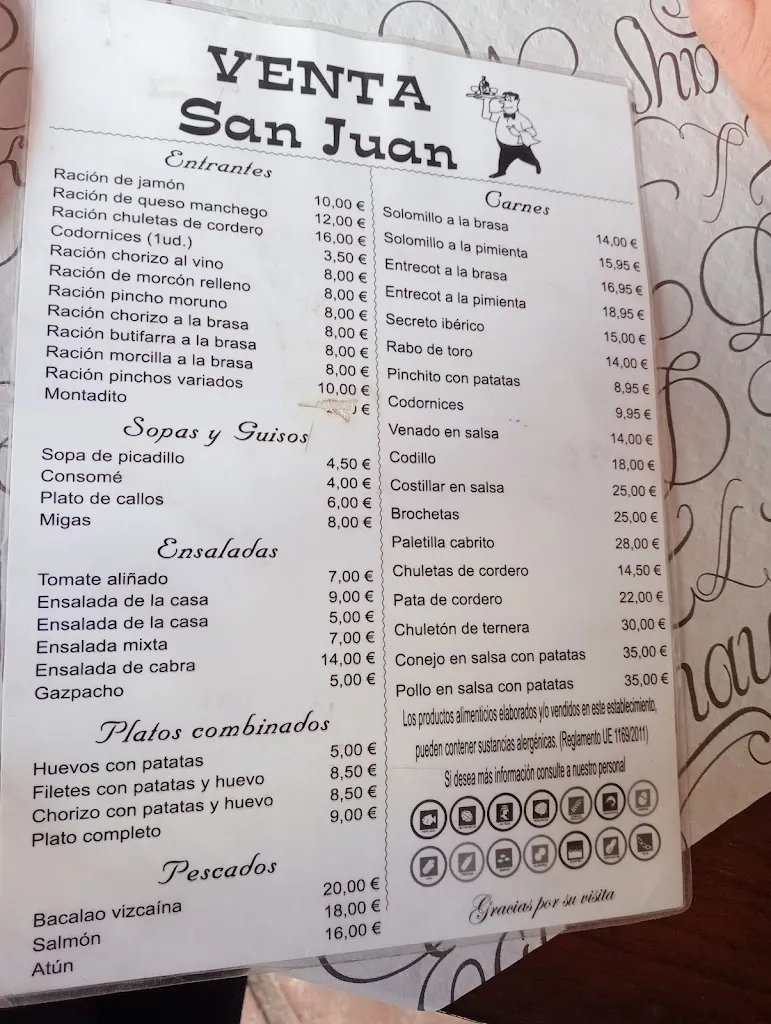 VENTA
San Juan
Entrantes
Ración de jamón 10,00 €
Ración de queso manchego 12,00 €
Ración chuletas de cordero 16,00 €
Codornices (1ud.) 3,50 €
Ración chorizo al vino 8,00 €
Ración de morcón relleno 8,00 €
Ración pincho moruno 8,00 €
Ración chorizo a la brasa 8,00 €
Ración butifarra a la brasa 8,00 €
Ración morcilla a la brasa 8,00 €
Ración pinchos variados 10,00 €
Montadito €
Sopas y Guisos
Sopa de picadillo 4,50 €
Consomé 4,00 €
Plato de callos 6,00 €
Migas 8,00 €
Ensaladas
Tomate aliñado 7,00 €
Ensalada de la casa 9,00 €
Ensalada de la casa 5,00 €
Ensalada mixta 7,00 €
Ensalada de cabra 14,00 €
Gazpacho 5,00 €
Platos combinados
Huevos con patatas 5,00 €
Filetes con patatas y huevo 8,50 €
Chorizo con patatas y huevo 8,50 €
Plato completo 9,00 €
Pescados
Bacalao vizcaína 20,00 €
Salmón 18,00 €
Atún 16,00 €
Carnes
Solomillo a la brasa 14,00 €
Solomillo a la pimienta 15,95 €
Entrecot a la brasa 16,95 €
Entrecot a la pimienta 18,95 €
Secreto ibérico 15,00 €
Rabo de toro 14,00 €
Pinchito con patatas 8,95 €
Codornices 9,95 €
Venado en salsa 14,00 €
Codillo 18,00 €
Costillar en salsa 25,00 €
Brochetas 25,00 €
Paletilla cabrito 28,00 €
Chuletas de cordero 14,50 €
Pata de cordero 22,00 €
Chuletón de ternera 30,00 €
Conejo en salsa con patatas 35,00 €
Pollo en salsa con patatas 35,00 €
Los productos alimenticios elaborados y/o vendidos en este establecimiento,
pueden contener sustancias alergénicas. (Reglamento UE 1169/2011)
Si desea más información consulte a nuestro personal
Gracias por su visita